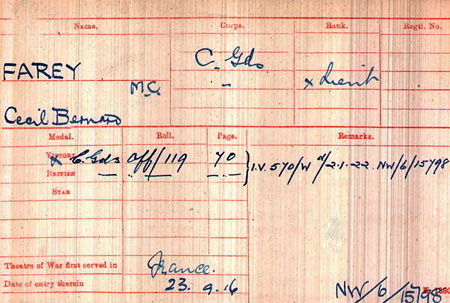 Name. Corps. Rank. Regtl. No.
FAREY M.C. C. Gds x Lieut
Cecil Bernard "
Medal. Roll. Page. Remarks.
Victory x C. Gds Off/119 70 } I.V. 570/W d/2-1-22 NW/6/15798
British " " "
Star
Theatre of War first served in France.
Date of entry therein 23.9.16
NW/6/15798